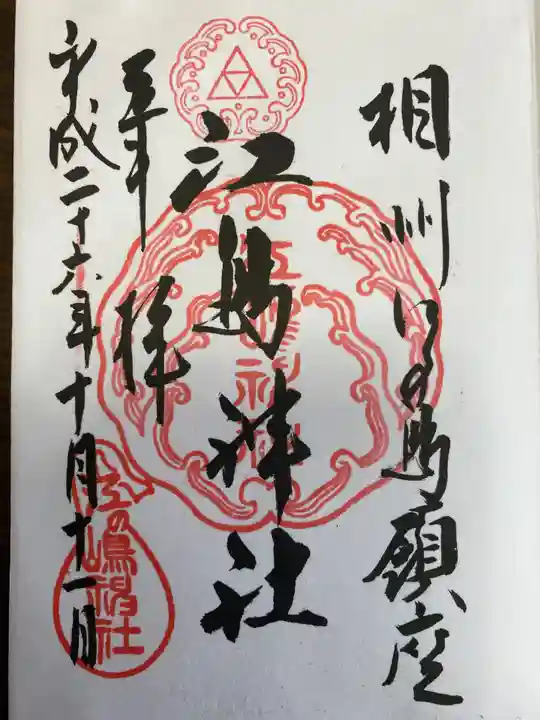 相州江の島鎮座
江島神社
奉拝
平成二十六年十月十一日
江の嶋神社